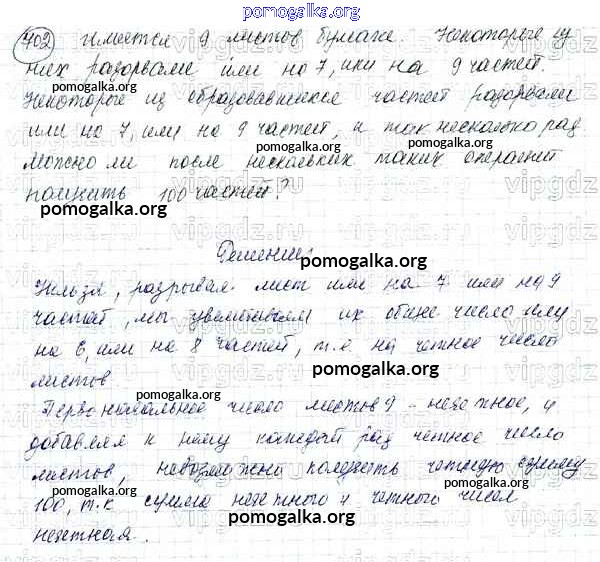 pomogalka.org
702 Имеется 9 листов бумаги. Некоторые из
них разорвали или на 7, или на 9 частей.
Некоторые из образовавшихся частей разорвали
или на 7, или на 9 частей, и так несколько раз
Можно ли после нескольких таких операций
получить 100 частей?
pomogalka.org
Решение:
pomogalka.org
Нельзя, разрывая лист или на 7 или на 9
частей, мы увеличиваем их общее число или
на 6, или на 8 частей, т.е на четное число
листов.
pomogalka.org
pomogalka.org
Первоначальное число листов 9 - нечетное, и
добавляя к нему каждый раз четное число
листов, невозможно получить четную сумму
100, т.к сумма нечетного и четного чисел
pomogalka.org
pomogalka.org
нечетная.
pomogalka.org
vipgdz.ru